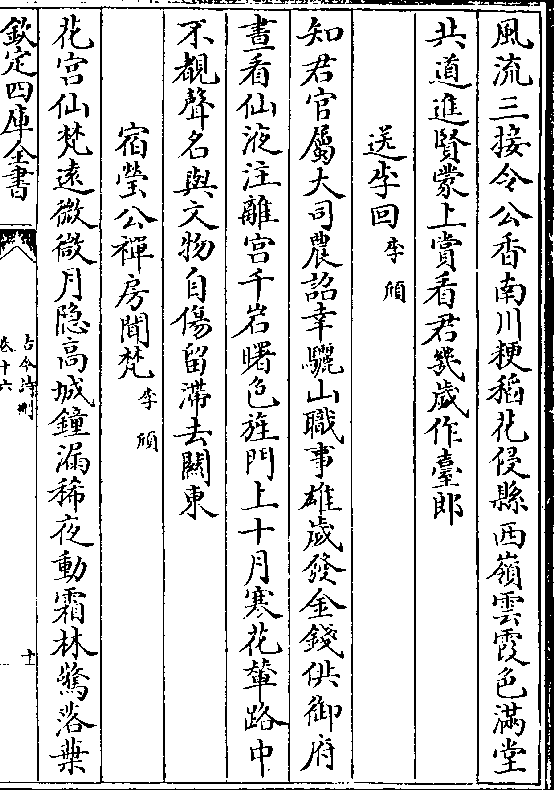 風流三接令公香南川粳稻花侵縣西嶺雲霞色滿堂
共道進賢蒙上賞看君幾歲作臺郎
送李回李頎
知君官屬大司農詔幸驪山職事雄歲發金錢供御府
晝看仙液注離宮千岩曙色旌門上十月寒花輦路中
不覩聲名與文物自傷留滯去關東
宿瑩公禪房聞梵李頎
花宮仙梵遠微微月隠高城鐘漏稀夜動霜林驚落葉
欽定四庫全書
古今詩刪
卷十六
十